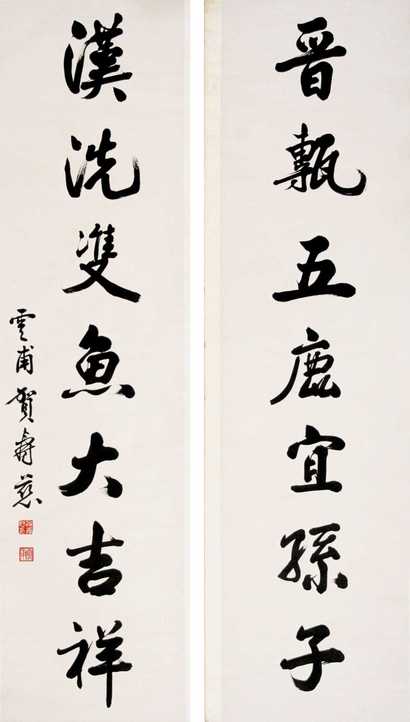 晉甎五鹿宜孫子
漢洗雙魚大吉祥
雲甫賀壽慈